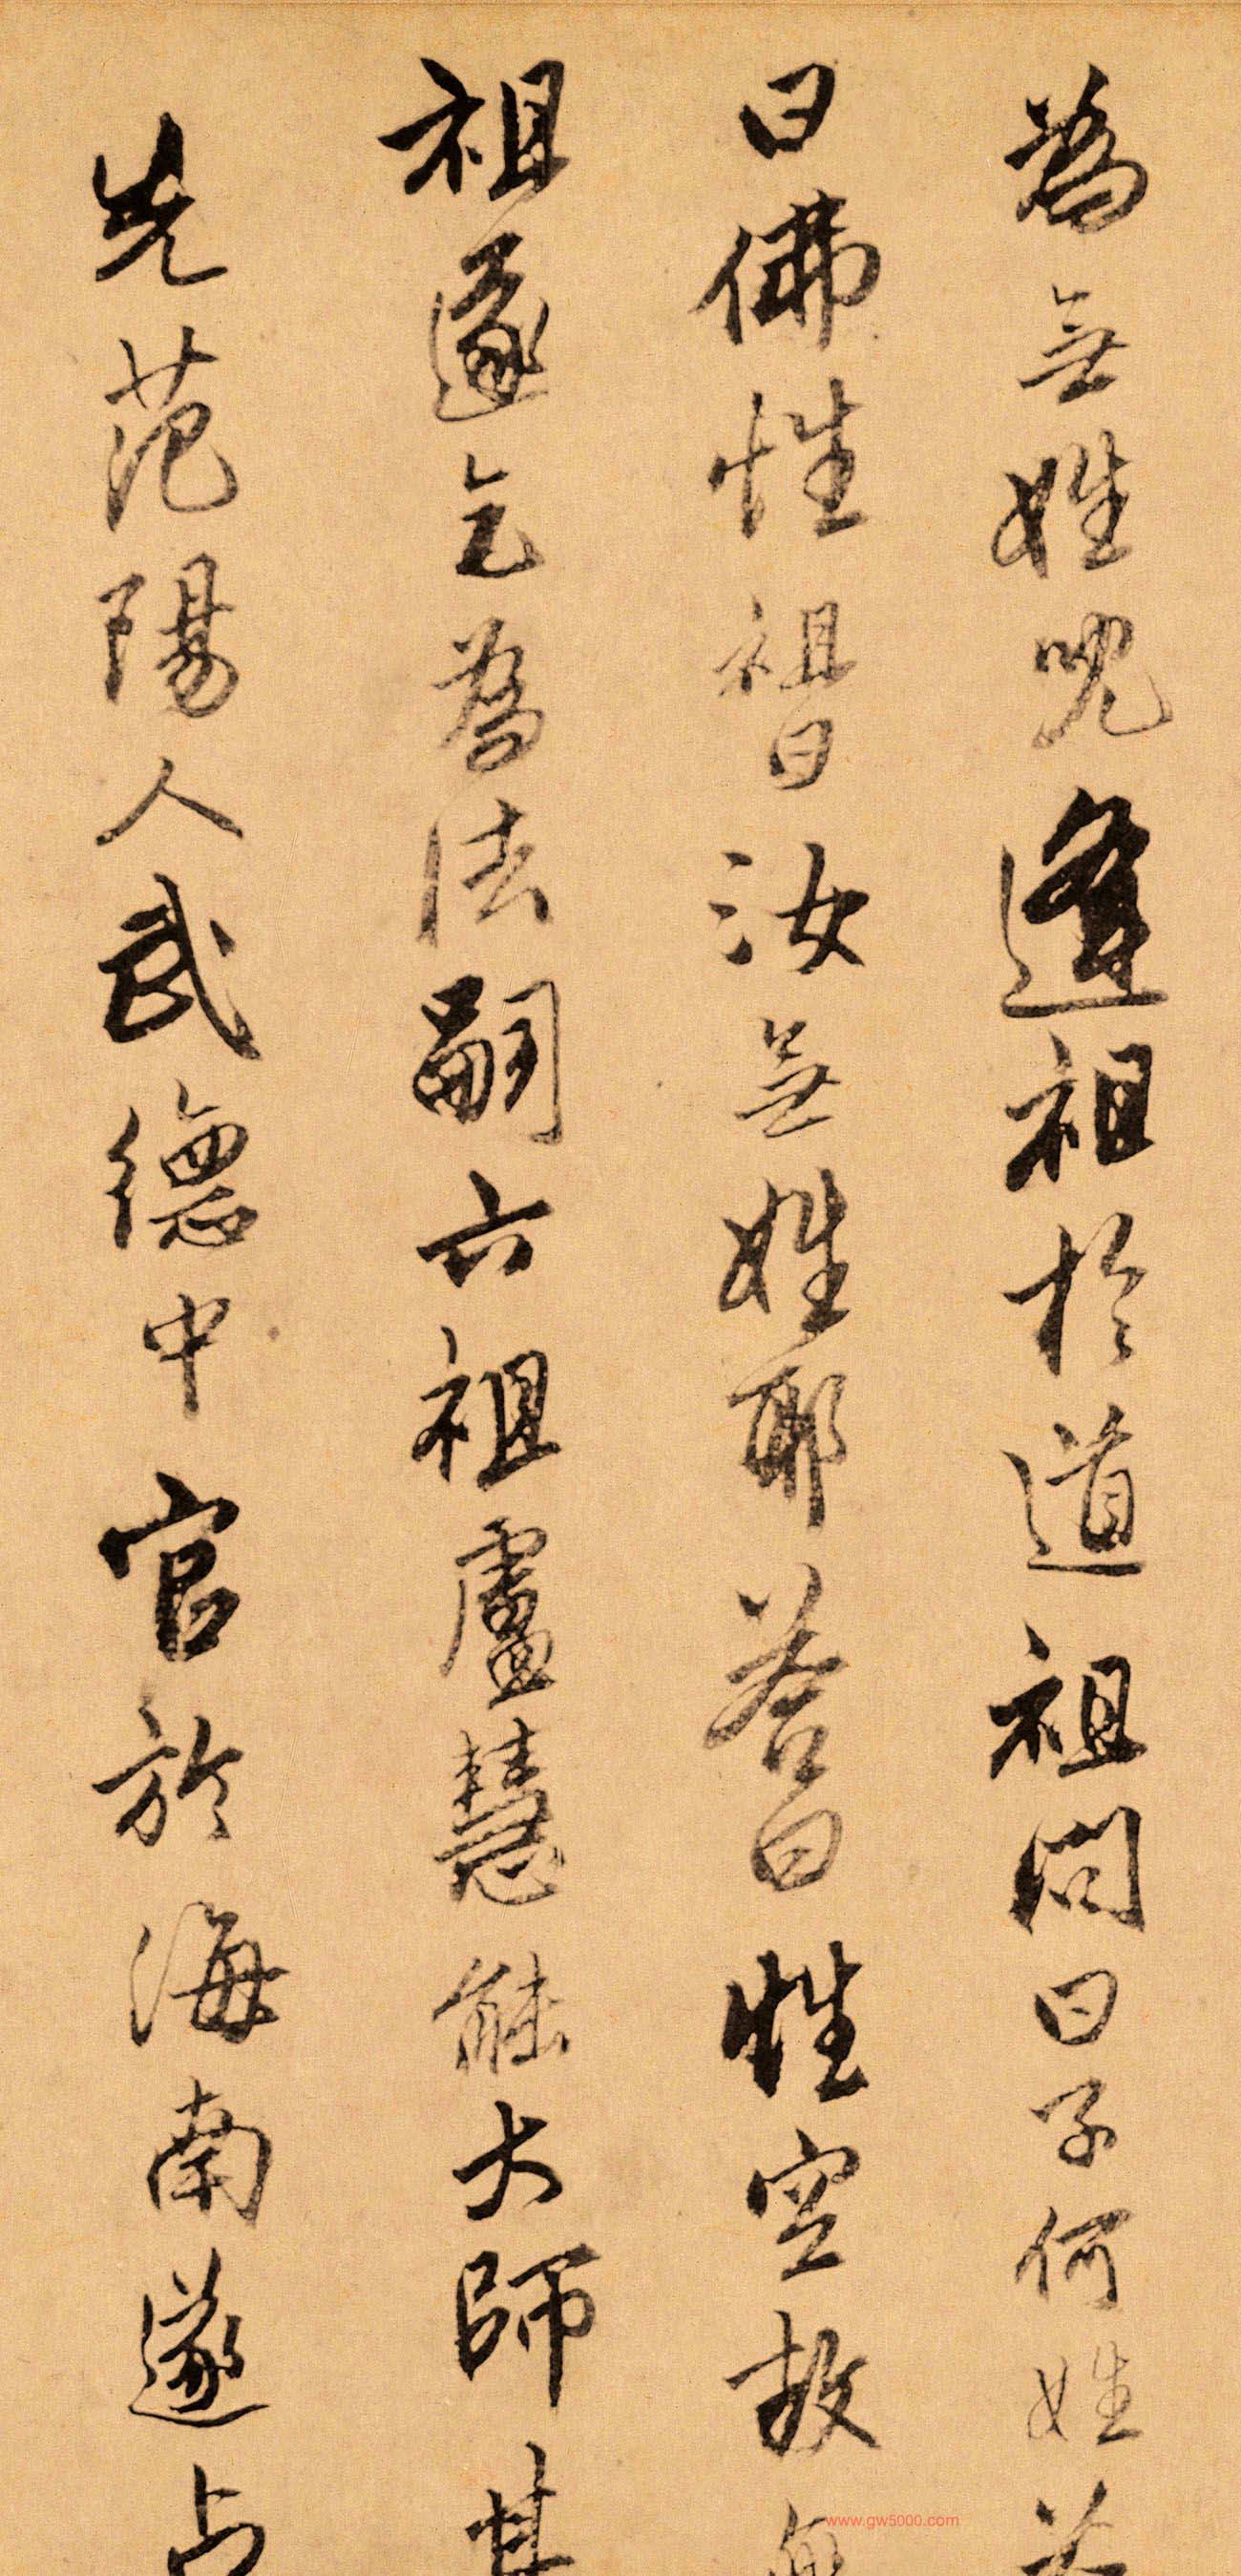 為無姓兒逢祖於道祖問曰子何姓答
曰佛性祖曰汝無姓耶答曰性空故無
祖遂乞為法嗣六祖盧慧能大師其
先范陽人武德中官於海南遂占
www.gw5000.com